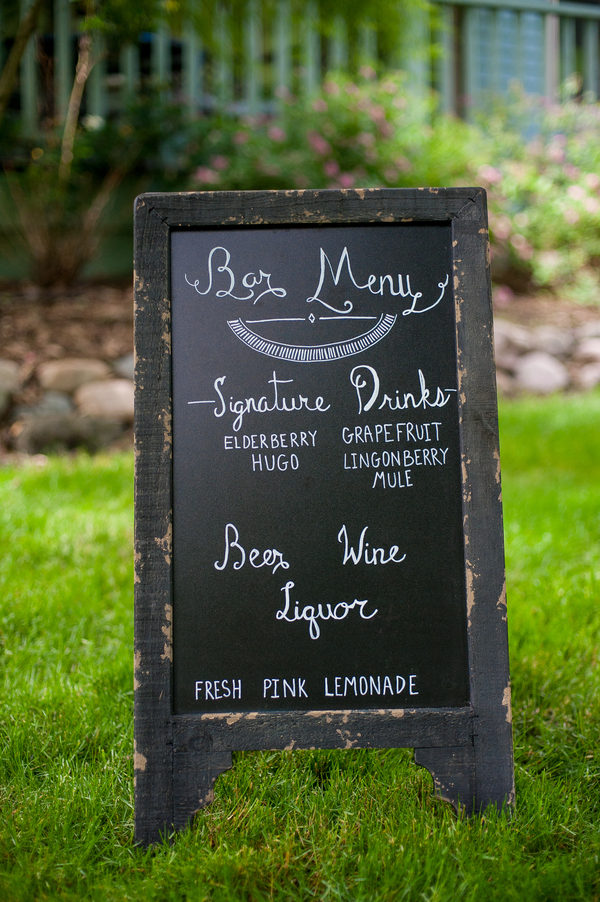 Bar Menu
Signature Drinks
ELDERBERRY HUGO
GRAPEFRUIT LINGONBERRY MULE
Beer Wine
Liquor
FRESH PINK LEMONADE